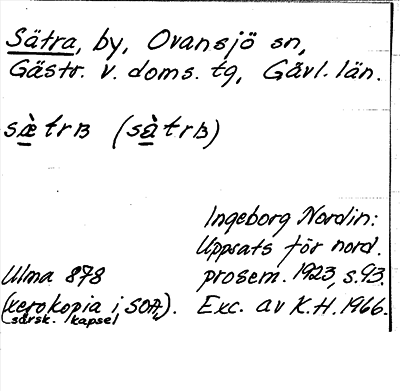 Sätra, by, Ovansjö sn,
Gästr. v. doms. tg, Gävl. län.
sæ̀trʙ (sàtrʙ)
Ingeborg Nordin:
Uppsats för nord.
Ulma 878 prosem. 1923, s. 93.
(xerokopia i SOA,). Exc. av K.H. 1966.
särsk. kapsel